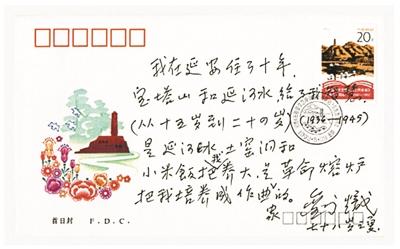 20分
我在延安住了十年.
宝塔山和延河水給了我
(从十五岁到二十四岁) (1936-1945)
是延河水土窑洞和
小米飯把我养大是革命熔炉
把我培养成作曲家的.
刘炽
七十八岁
首日封 F.D.C.